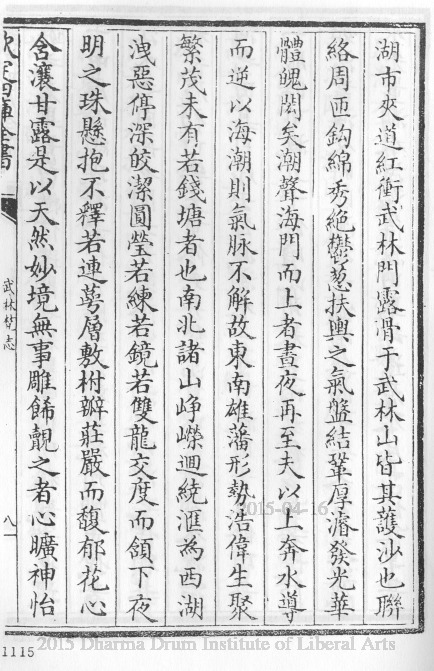 湖市夾道紅衝武林門露骨于武林山皆其護沙也聯
絡周匝鈎綿秀絶鬱葱扶輿之氣盤結鞏厚濬發光華
體魄閎矣潮聲海門而上者晝夜再至夫以上奔水導
而逆以海潮則氣脉不解故東南雄藩形勢浩偉生聚
繁茂未有若錢塘者也南北諸山崢嶸迴繞滙為西湖
洩惡停深皎潔圓瑩若練若鏡若雙龍交度而頷下夜
明之珠懸抱不釋若連萼層敷柎瓣莊嚴而馥郁花心
含瀼甘露是以天然妙境無事雕餙覿之者心曠神怡
欽定四庫全書
武林梵志
八
2015-04-16
1115
2015 Dharma Drum Institute of Liberal Arts